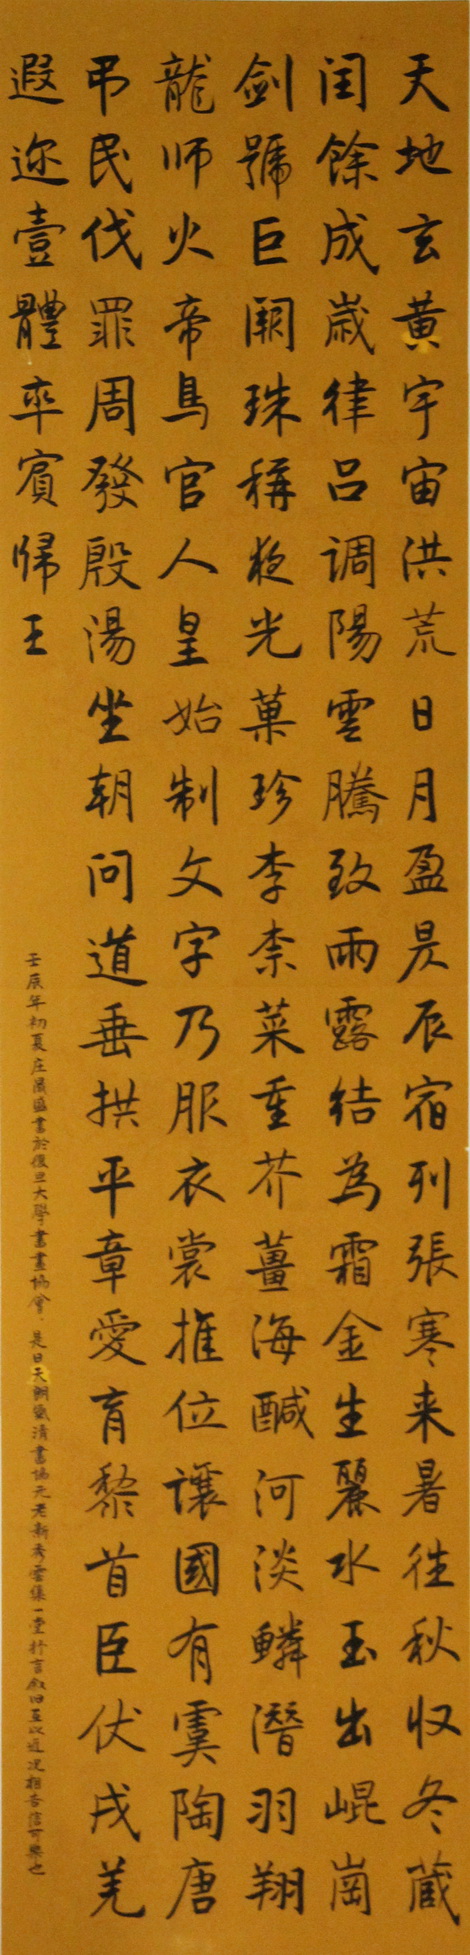 天地玄黄宇宙洪荒日月盈昃辰宿列張寒来暑往秋収冬蔵
闰餘成歲律吕调陽雲騰致雨露结為霜金生麗水玉出崐崗
剑號巨阙珠稱夜光菓珍李柰菜重芥薑海醎河淡鳞潛羽翔
龍师火帝鸟官人皇始制文字乃服衣裳推位讓國有虞陶唐
弔民伐罪周發殷湯坐朝问道垂拱平章愛育黎首臣伏戎羌
遐迩壹體率賓歸王
壬辰年初夏庄晟區書於復旦大學書畫協會,是日天朗氣清書協元老新秀雲集一堂抒言叙旧互以近况相告信可樂也